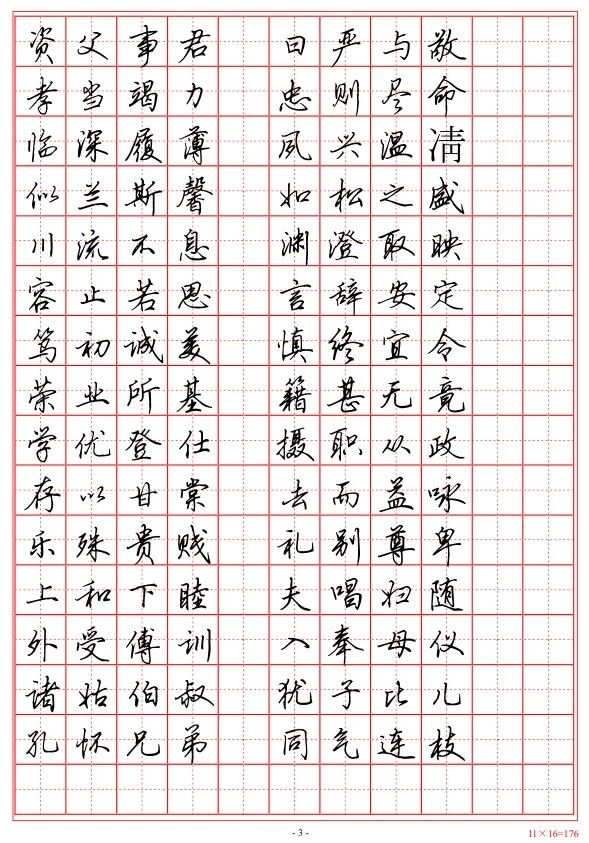 资父事君 曰严与敬
孝当竭力 忠则尽命
临深履薄 夙兴温凊
似兰斯馨 如松之盛
川流不息 渊澄取映
容止若思 言辞安定
笃初诚美 慎终宜令
荣业所基 籍甚无竟
学优登仕 摄职从政
存以甘棠 去而益咏
乐殊贵贱 礼别尊卑
上和下睦 夫唱妇随
外受傅训 入奉母仪
诸姑伯叔 犹子比儿
孔怀兄弟 同气连枝
- 3 -
11×16=176